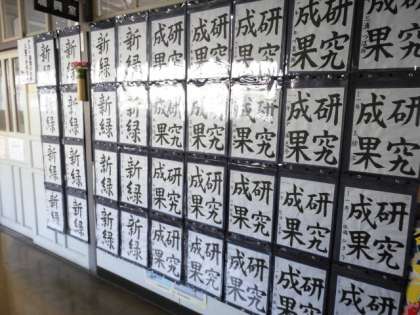 研究
成果
研究
成果
研究
成果
研究
成果
研究
成果
新緑
新緑
新緑
新緑
研究
成果
研究
成果
研究
成果
研究
成果
研究
成果
新緑
新緑
新緑
新緑
研究
成果
研究
成果
研究
成果
研究
成果
研究
成果
新緑
新緑
新緑
新緑
研究
成果
研究
成果
研究
成果
研究
成果
研究
成果
新緑
新緑
新緑
新緑